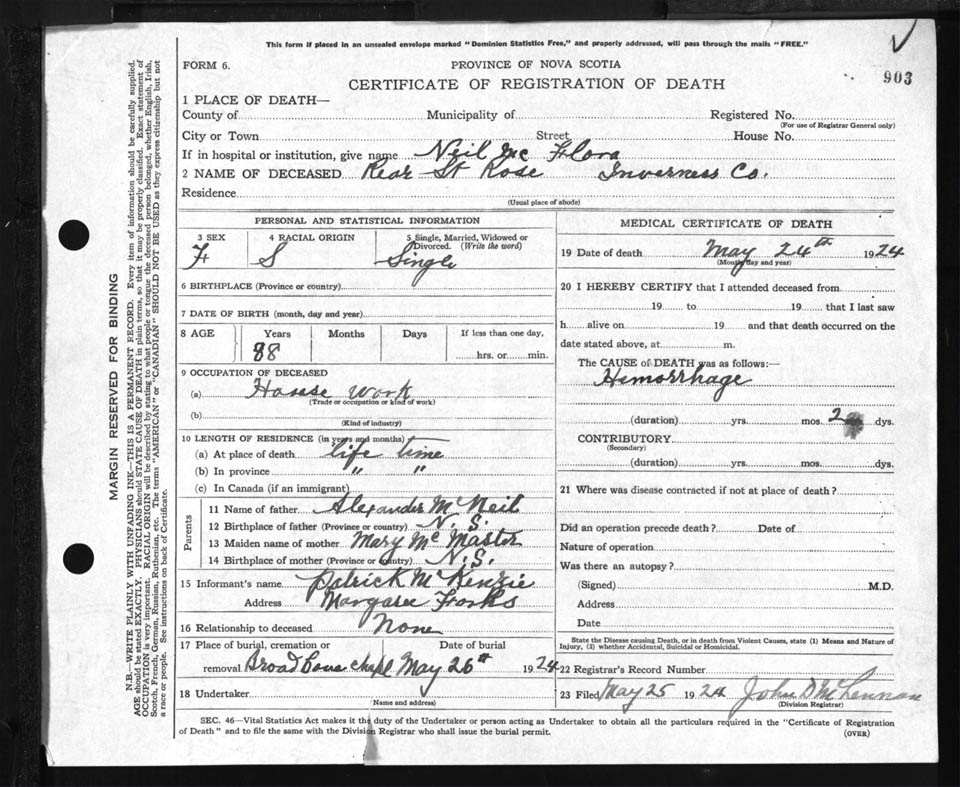 This form if placed in an unsealed envelope marked "Dominion Statistics Free," and properly addressed, will pass through the mails "FREE."
FORM 6.
PROVINCE OF NOVA SCOTIA
903
CERTIFICATE OF REGISTRATION OF DEATH
1 PLACE OF DEATH—
County of
Municipality of
Registered No.
(For use of Registrar General only)
City or Town
Street
House No.
If in hospital or institution, give name Neil Mc Flora
2 NAME OF DECEASED Rear St Rose Inverness Co.
Residence
(Usual place of abode)
PERSONAL AND STATISTICAL INFORMATION
3 SEX
F
4 RACIAL ORIGIN
S
5 Single, Married, Widowed or Divorced. (Write the word)
Single
6 BIRTHPLACE (Province or country)
7 DATE OF BIRTH (month, day and year)
8 AGE
Years
Months
Days
If less than one day,
88
hrs. or min.
9 OCCUPATION OF DECEASED
(a) House Work
(Trade or occupation or kind of work)
(b)
(Kind of industry)
10 LENGTH OF RESIDENCE (in years and months)
(a) At place of death life time
(b) In province " "
(c) In Canada (if an immigrant)
Parents
11 Name of father Alexander McNeil
12 Birthplace of father (Province or country) N. S.
13 Maiden name of mother Mary McMaster
14 Birthplace of mother (Province or country) N.S.
15 Informant's name Patrick McKenzie
Address Margaree Forks
16 Relationship to deceased None
17 Place of burial, cremation or removal
Date of burial
Broad Cove Chapl May 26th 1924
18 Undertaker
Name and address)
MEDICAL CERTIFICATE OF DEATH
19 Date of death May 24th 1924
(Month, day and year)
20 I HEREBY CERTIFY that I attended deceased from
19 to 19 that I last saw
h alive on 19 and that death occurred on the
date stated above, at m.
The CAUSE of DEATH was as follows:—
Hemorrhage
(duration) yrs. mos. 2 dys.
CONTRIBUTORY
(Secondary)
(duration) yrs. mos. dys.
21 Where was disease contracted if not at place of death?
Did an operation precede death? Date of
Nature of operation
Was there an autopsy?
(Signed) M.D.
Address
Date
State the Disease causing Death, or in death from Violent Causes, state (1) Means and Nature of
Injury, (2) whether Accidental, Suicidal or Homicidal.
22 Registrar's Record Number
23 Filed May 25 1924 John D McLennan
(Division Registrar)
SEC. 46—Vital Statistics Act makes it the duty of the Undertaker or person acting as Undertaker to obtain all the particulars required in the "Certificate of Registration
of Death" and to file the same with the Division Registrar who shall issue the burial permit.
(OVER)
MARGIN RESERVED FOR BINDING
N.B.—WRITE PLAINLY WITH UNFADING INK—THIS IS A PERMANENT RECORD. Every item of information should be carefully supplied.
AGE should be stated EXACTLY. PHYSICIANS should STATE CAUSE OF DEATH in plain terms, so that it may be properly classified. Exact statement of
OCCUPATION is very important. RACIAL ORIGIN will be described by stating to what people or tongue the deceased person belonged, whether English, Irish,
Scotch, French, German, Russian, Ruthenian, etc. The terms "AMERICAN" or "CANADIAN" SHOULD NOT BE USED as they express citizenship but not
a race or people. See instructions on back of Certificate.